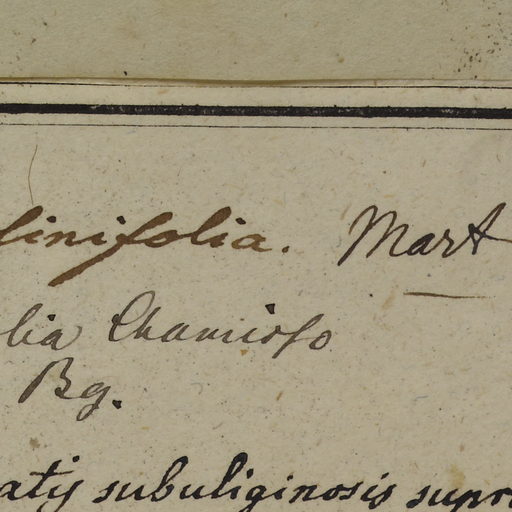 linifolia. Mart
lia Chamisso
Bg.
atis subuliginosis supr